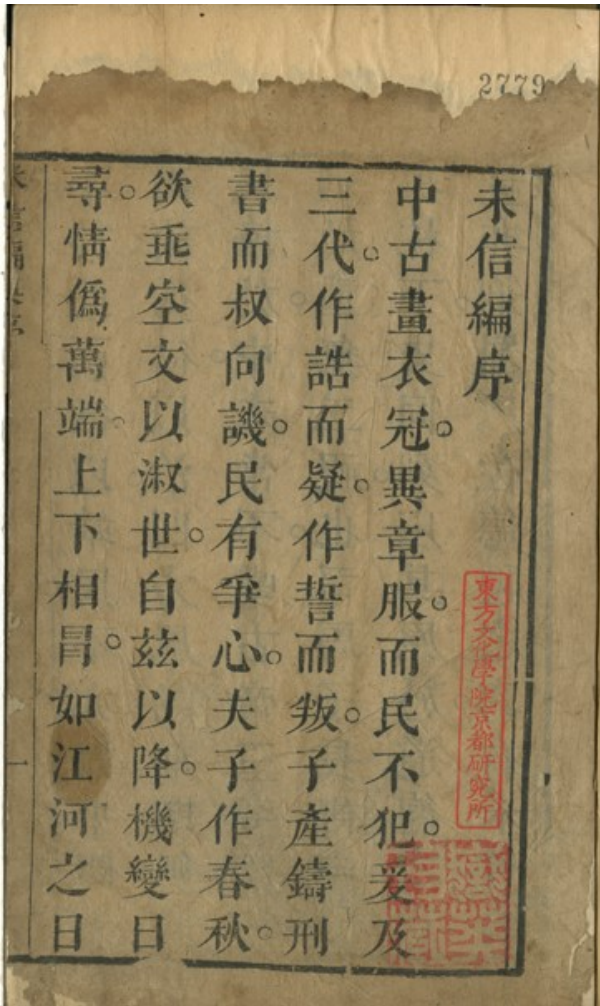 2779
未信編序
中古畫衣冠。異章服。而民不犯。爰及
三代。作誥而疑。作誓而叛。子產鑄刑
書而叔向譏。民有爭心。夫子作春秋。
欲垂空文以淑世。自茲以降。機變日
尋。情僞萬端。上下相冒。如江河之日
東方文化學院京都研究所
未信編
一